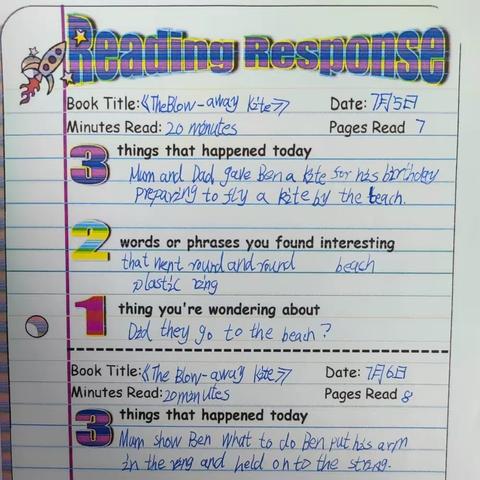 Reading Response
Book Title:《TheBlow-away kite》 Date: 7月5日
Minutes Read: 20 minutes Pages Read 7
3 things that happened today
Mum and Dad gave Ben a kite for his birthday
preparing to fly a kite by the beach.
2 words or phrases you found interesting
that went round and round beach
plastic ring
1 thing you're wondering about
Did they go to the beach?
Book Title:《The Blow-away kite》 Date: 7月6日
Minutes Read: 20 minutes Pages Read 8
3 things that happened today
Mum show Ben what to do Ben put his arm
in the ring and held on to the string.